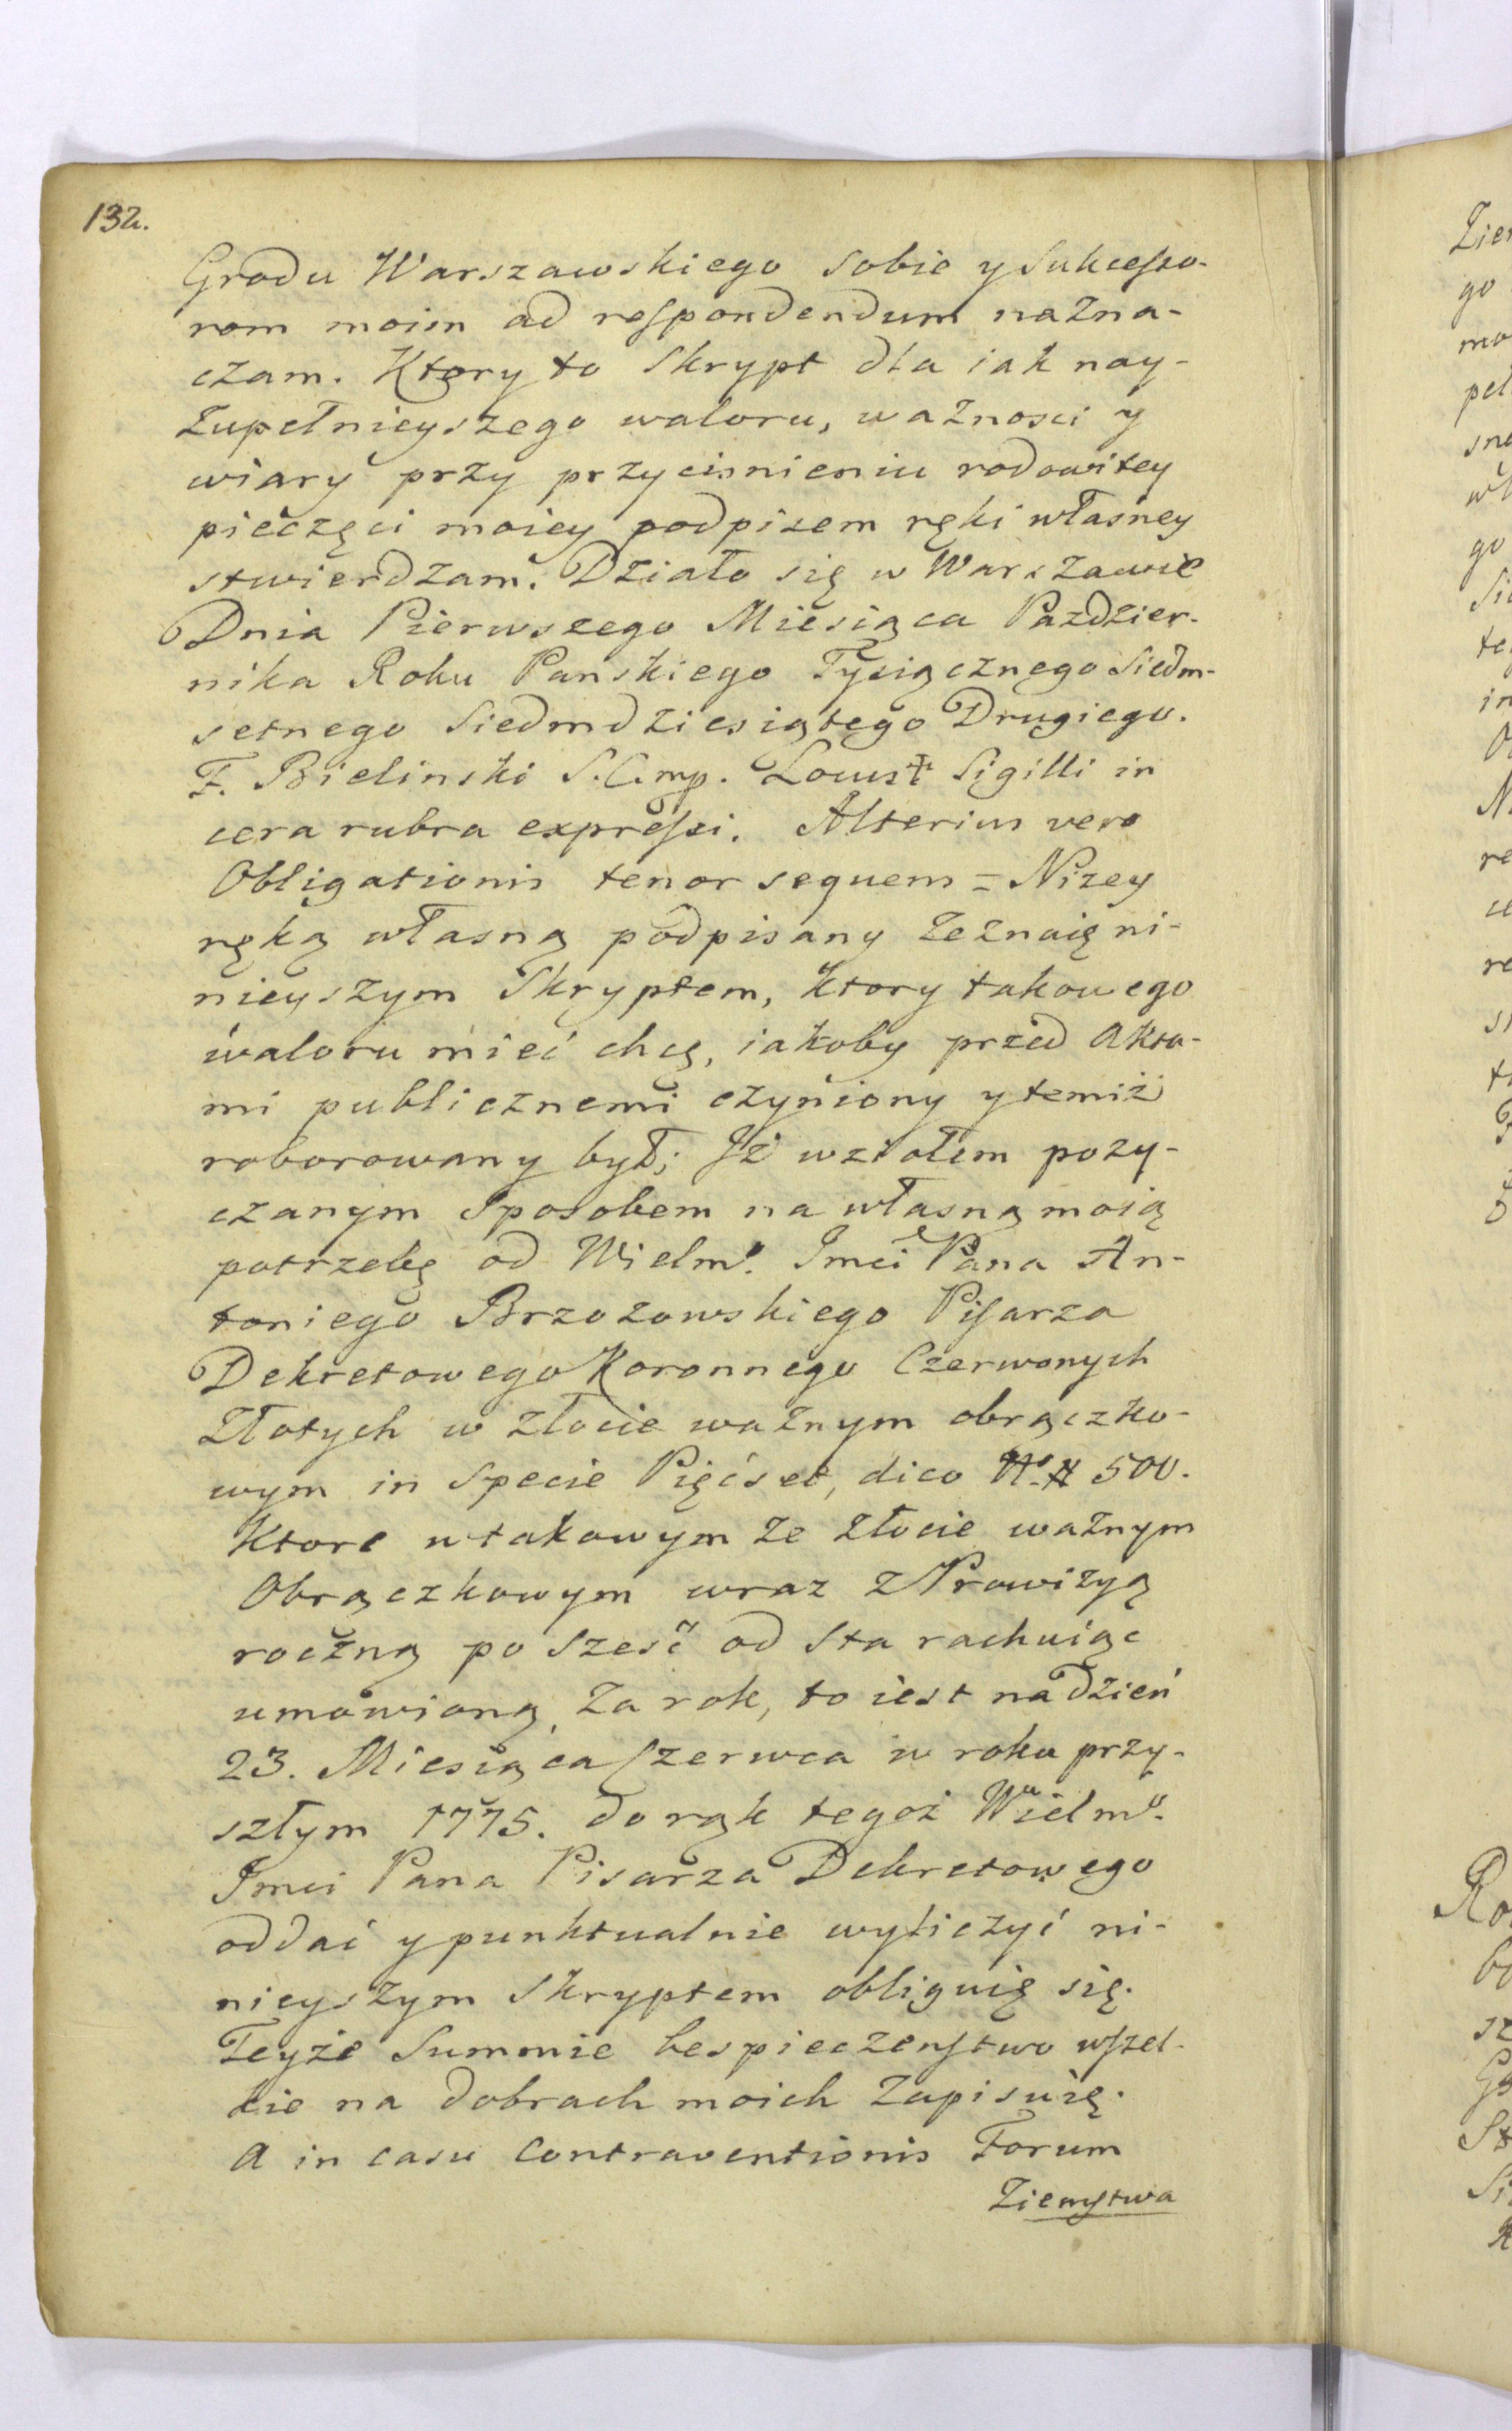 132.
Grodu Warszawskiego sobie y Sukcesso-
rom moim ad respondendum nazna-
czam. Ktory to Skrypt dla iak nay-
zupełnieyszego waloru, ważnosci y
wiary przy przycisnieniu rodowitey
pieczęci moiey podpisem ręki własney
stwierdzam. Działo się w Warszawie
Dnia Pierwszego Miesiąca Pazdzier-
nika Roku Panskiego Tysiącznego Siedm-
setnego Siedmdziesiątego Drugiego.
F. Bielinski S. C. mp. Locus Sigilli in
cera rubra expressi. Alterius vero
Obligationis tenor sequens = Niżey
ręką własną podpisany zeznaię ni-
nieyszym Skryptem, ktory takowego
waloru mieć chcę, iakoby przed Akta-
mi publicznemi czyniony y temiż
roborowany był; Iż wziołem pozy-
czanym Sposobem na własną moią
potrzebę od Wielmo. Imci Pana An-
toniego Brzozowskiego Pisarza
Dekretowego Koronnego Czerwonych
Złotych w złocie ważnym obrączko-
wym in Specie Pięćset, dico No. # 500.
Ktore w takowym że złocie ważnym
Obrączkowym wraz z Prowizyą
roczną po szesć od sta rachuiąc
umowioną, za rok, to iest na dzień
23. Miesiąca Czerwca w roku przy-
szłym 1775. do rąk tegoż Wielmo.
Imci Pana Pisarza Dekretowego
oddać y punktualnie wyliczyć ni-
nieyszym Skryptem obliguię się.
Teyże Summie bespieczenstwo wszel-
kie na dobrach moich zapisuię.
A in casu Contraventionis Forum
Ziemstwa
Zie
go
mo
peł
sne
go
te
in
re
re
Ro
sz